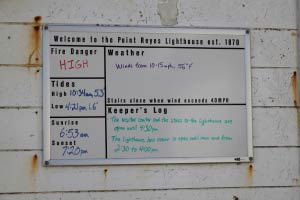 Welcome to the Point Reyes Lighthouse est. 1870
Fire Danger
HIGH
Weather
Winds from 10-15mph, 55°F
Tides
High 10:34am, 5.3
Low 4:21pm, 1.6
Stairs close when wind exceeds 40MPH
Sunrise
6:53am
Sunset
7:20pm
Keeper's Log
The visitor center and the stairs to the lighthouse are
open until 4:30pm.
The lighthouse lens room is open until most and from
2:30 to 4:00pm.